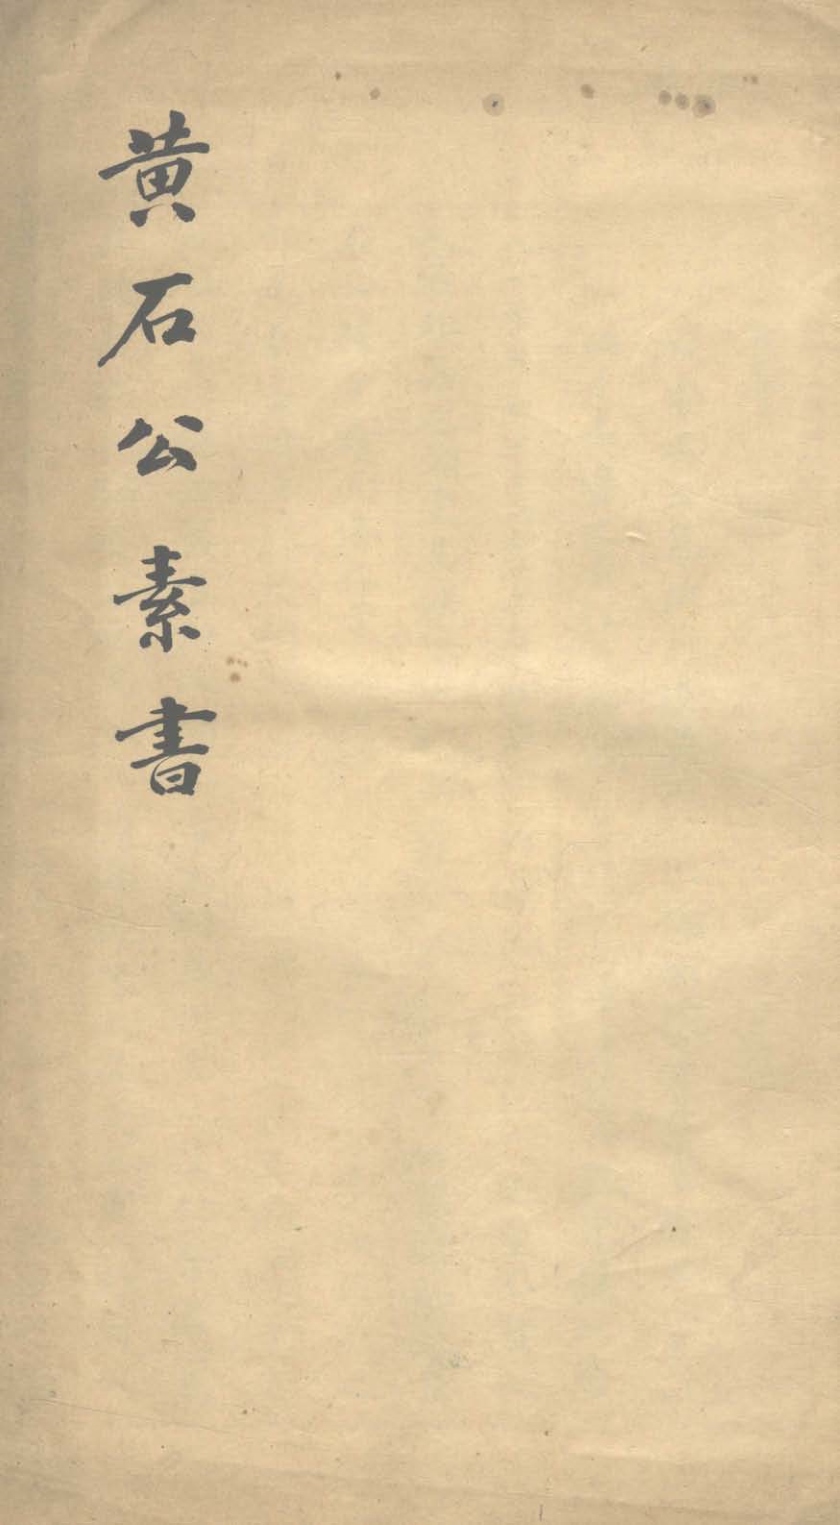 黄石公素書